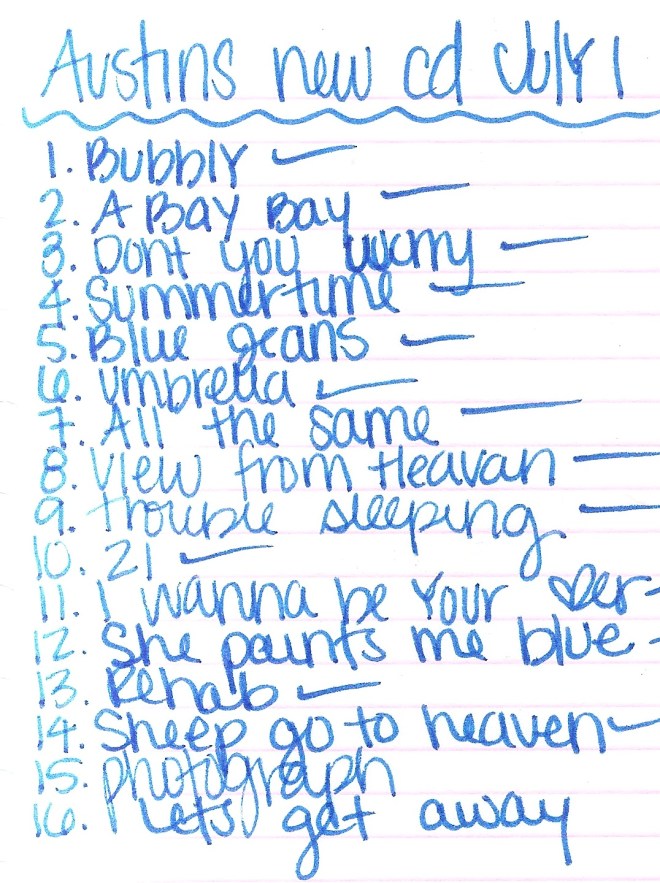 Austins new cd July 1
1. Bubbly
2. A Bay Bay
3. Dont you worry
4. Summertime
5. Blue jeans
6. umbrella
7. All the same
8. View from Heavan
9. trouble sleeping
10. 21
11. I wanna be your ♡er
12. She paints me blue
13. Rehab
14. Sheep go to heaven
15. photograph
16. Lets get away